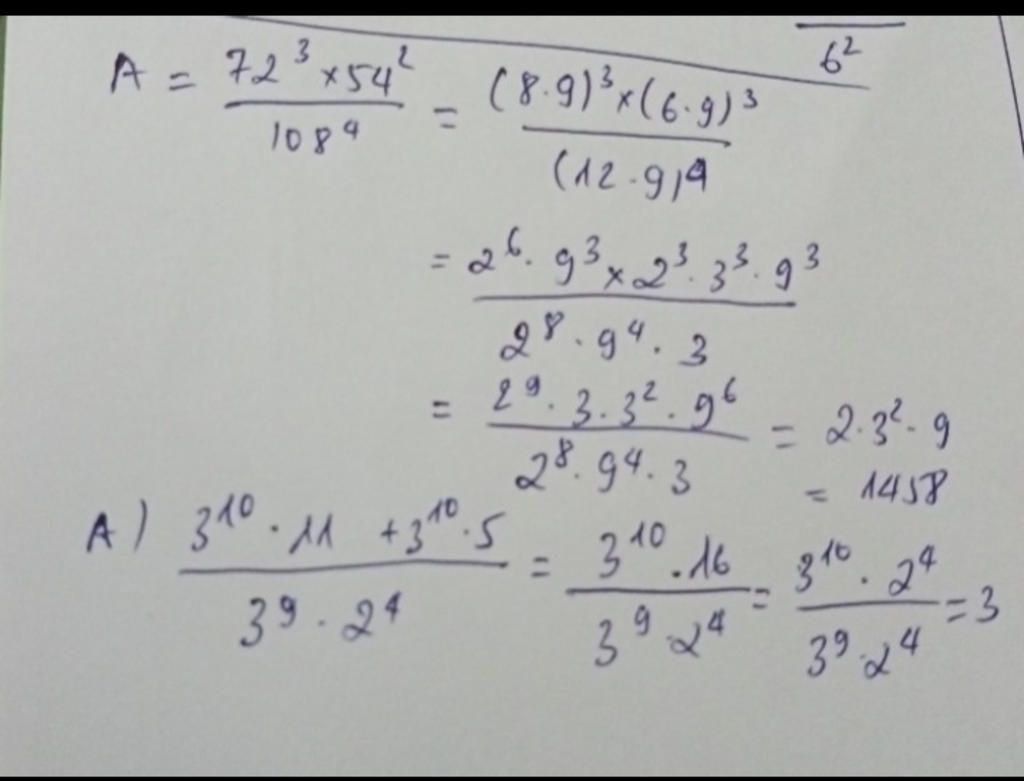 6²
A = 72³ × 54² / 108⁴ = (8·9)³ × (6·9)³ / (12·9)4
= 2⁶ · 9³ × 2³ · 3³ · 9³ / 2⁸ · 9⁴ · 3
= 2⁹ · 3 · 3² · 9⁶ / 2⁸ · 9⁴ · 3 = 2·3²·9
= 1458
A) 3¹⁰ · 11 + 3¹⁰ · 5 / 3⁹ · 2⁴ = 3¹⁰ · 16 / 3⁹ · 2⁴ = 3¹⁰ · 2⁴ / 3⁹ · 2⁴ = 3